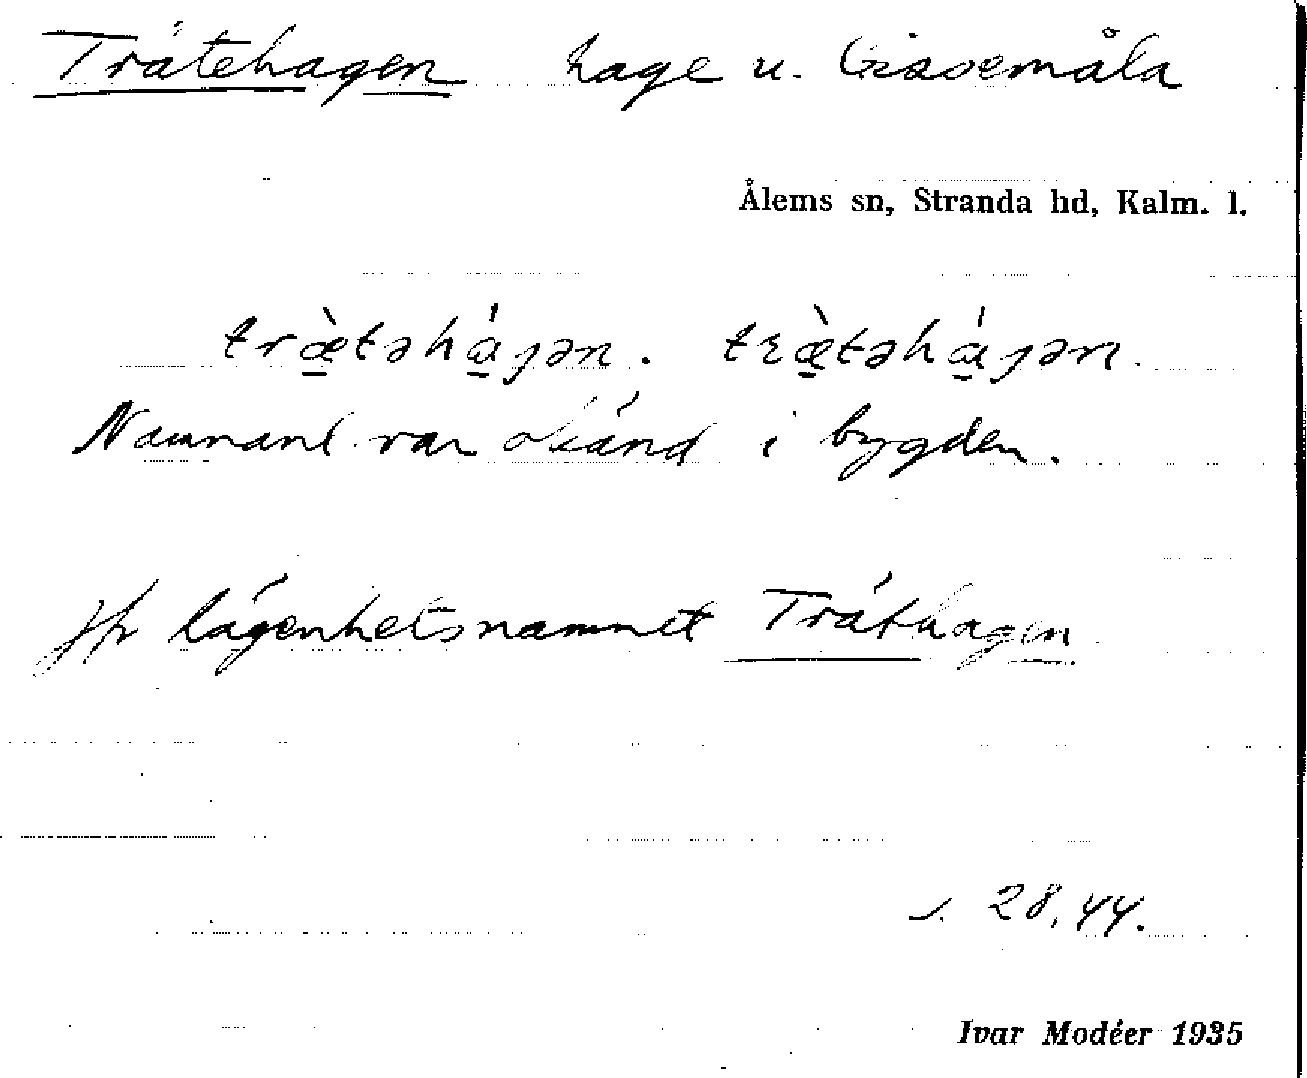 Trätehagen hage u. Gissemåla
Ålems sn, Stranda hd, Kalm. l.
træ̀təhá̱ɟən. træ̀təhá̱ɟən.
Namnet var okänd i bygden.
jfr lägenhetsnamnet Träthagen
s. 28, 44.
Ivar Modéer 1935